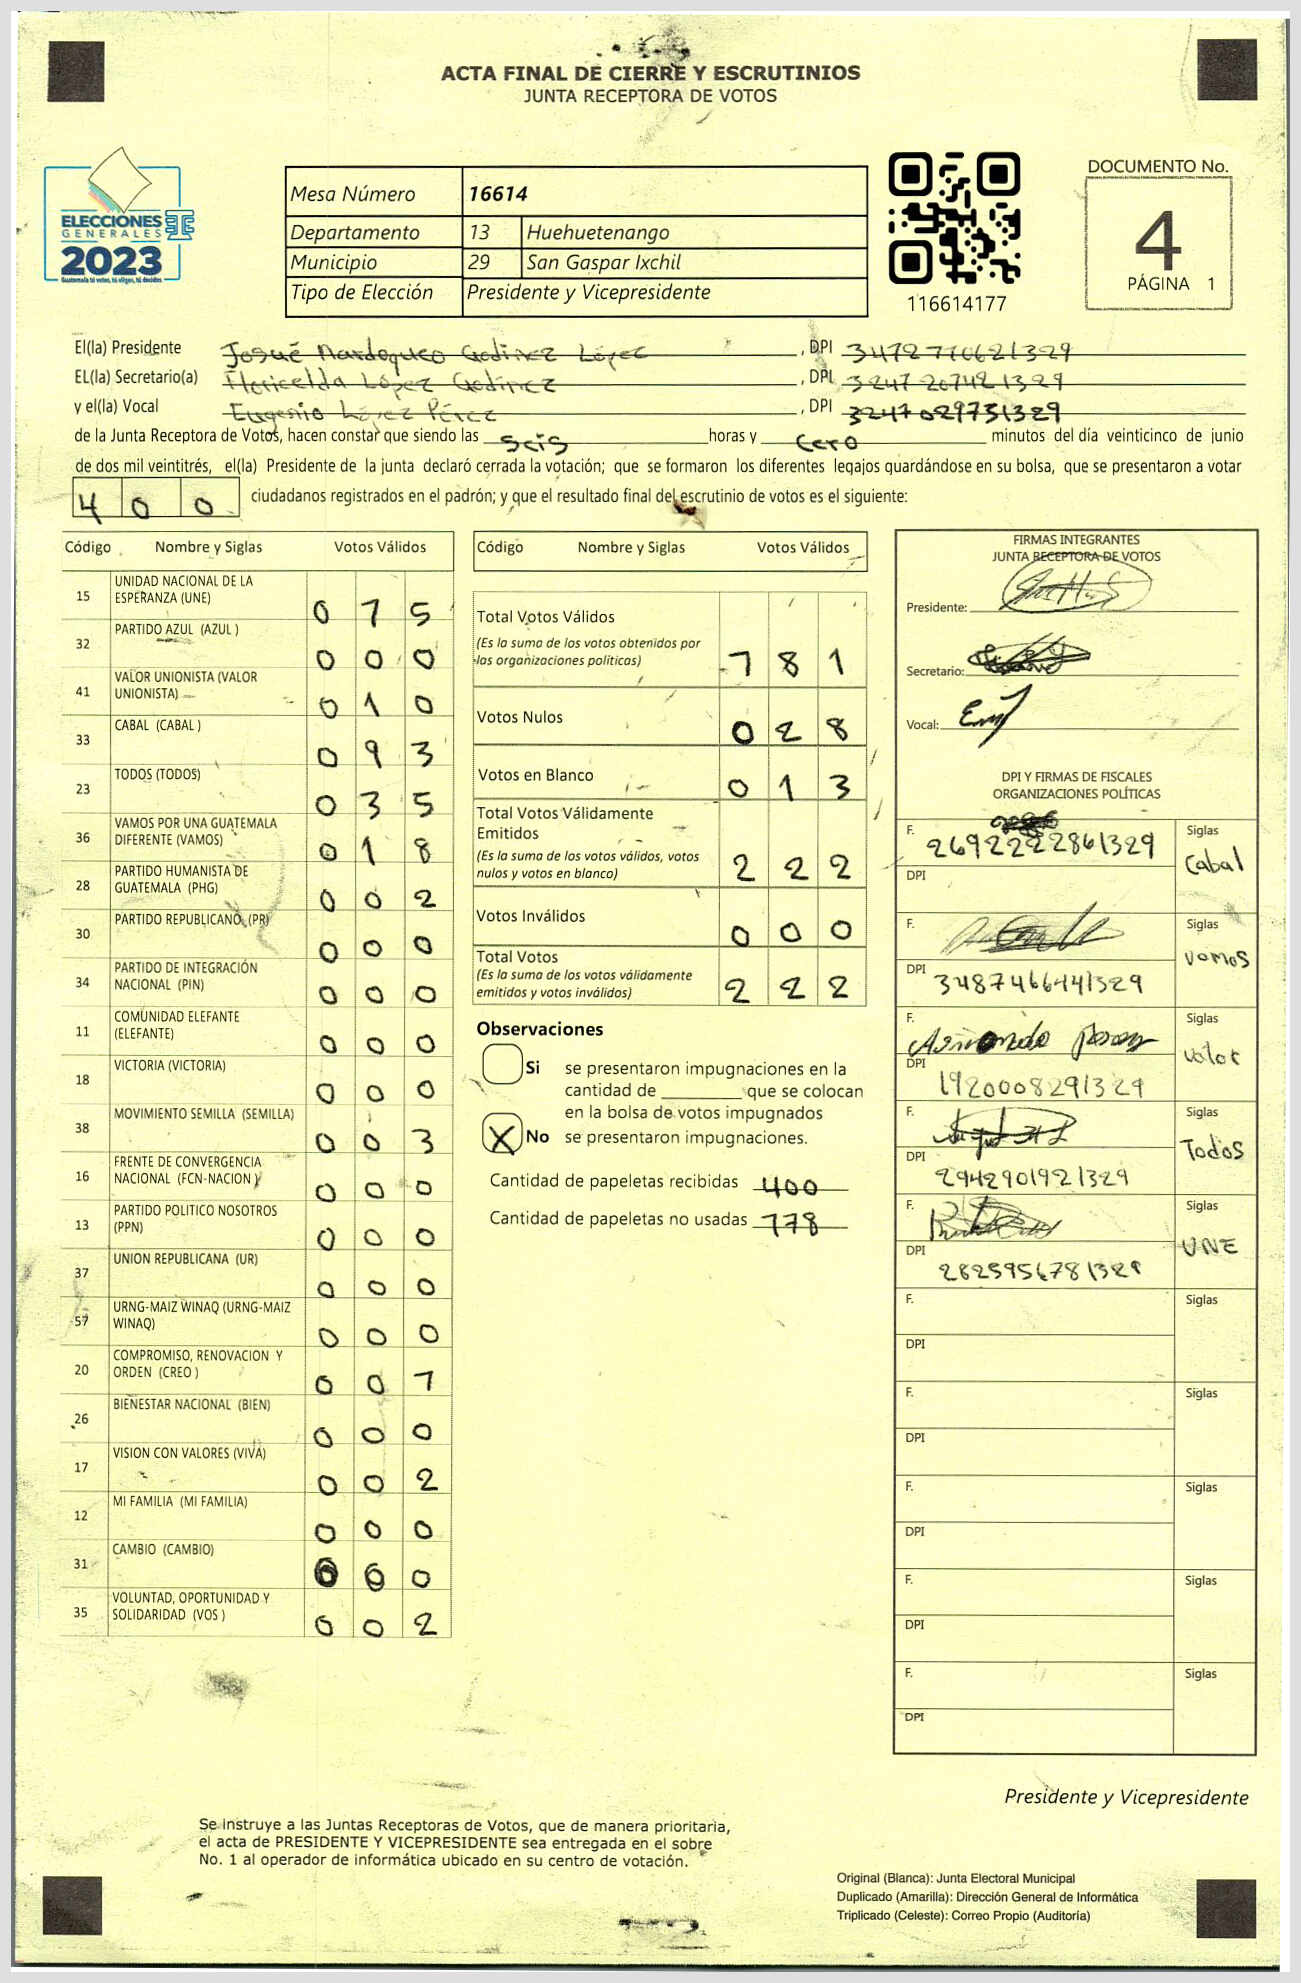 ACTA FINAL DE CIERRE Y ESCRUTINIOS
JUNTA RECEPTORA DE VOTOS
ELECCIONES
GENERALES
2023
Guatemala tú votas, tú eliges, tú decides
Mesa Número 16614
Departamento 13 Huehuetenango
Municipio 29 San Gaspar Ixchil
Tipo de Elección Presidente y Vicepresidente
116614177
DOCUMENTO No.
4
PÁGINA 1
El(la) Presidente Josué Mardoqueo Godinez López, DPI 3472770621329
EL(la) Secretario(a) Floricelda López Godinez, DPI 3247207421329
y el(la) Vocal Eugenio López Pérez, DPI 3247029751329
de la Junta Receptora de Votos, hacen constar que siendo las seis horas y cero minutos del día veinticinco de junio
de dos mil veintitrés, el(la) Presidente de la junta declaró cerrada la votación; que se formaron los diferentes legajos guardándose en su bolsa, que se presentaron a votar
400 ciudadanos registrados en el padrón; y que el resultado final del escrutinio de votos es el siguiente:
Código Nombre y Siglas Votos Válidos
15 UNIDAD NACIONAL DE LA ESPERANZA (UNE) 075
32 PARTIDO AZUL (AZUL ) 000
41 VALOR UNIONISTA (VALOR UNIONISTA) 010
33 CABAL (CABAL ) 093
23 TODOS (TODOS) 035
36 VAMOS POR UNA GUATEMALA DIFERENTE (VAMOS) 018
28 PARTIDO HUMANISTA DE GUATEMALA (PHG) 002
30 PARTIDO REPUBLICANO (PR) 000
34 PARTIDO DE INTEGRACIÓN NACIONAL (PIN) 000
11 COMUNIDAD ELEFANTE (ELEFANTE) 000
18 VICTORIA (VICTORIA) 000
38 MOVIMIENTO SEMILLA (SEMILLA) 003
16 FRENTE DE CONVERGENCIA NACIONAL (FCN-NACION ) 000
13 PARTIDO POLITICO NOSOTROS (PPN) 000
37 UNION REPUBLICANA (UR) 000
57 URNG-MAIZ WINAQ (URNG-MAIZ WINAQ) 000
20 COMPROMISO, RENOVACION Y ORDEN (CREO ) 007
26 BIENESTAR NACIONAL (BIEN) 000
17 VISION CON VALORES (VIVA) 002
12 MI FAMILIA (MI FAMILIA) 000
31 CAMBIO (CAMBIO) 000
35 VOLUNTAD, OPORTUNIDAD Y SOLIDARIDAD (VOS ) 002
Código Nombre y Siglas Votos Válidos
Total Votos Válidos
(Es la suma de los votos obtenidos por
las organizaciones políticas) 781
Votos Nulos 028
Votos en Blanco 013
Total Votos Válidamente
Emitidos
(Es la suma de los votos válidos, votos
nulos y votos en blanco) 222
Votos Inválidos 000
Total Votos
(Es la suma de los votos válidamente
emitidos y votos inválidos) 222
Observaciones
Si se presentaron impugnaciones en la
cantidad de ________ que se colocan
en la bolsa de votos impugnados
X No se presentaron impugnaciones.
Cantidad de papeletas recibidas 400
Cantidad de papeletas no usadas 778
FIRMAS INTEGRANTES
JUNTA RECEPTORA DE VOTOS
Presidente:
Secretario:
Vocal:
DPI Y FIRMAS DE FISCALES
ORGANIZACIONES POLÍTICAS
F. 2692222861329 Siglas
DPI Cabal
F. Siglas
DPI 3487466441329 Vamos
F. Siglas
DPI 1920008291329 Valor
F. Siglas
DPI 2942901921329 Todos
F. Siglas
DPI 2825956781329 UNE
F. Siglas
DPI
F. Siglas
DPI
F. Siglas
DPI
F. Siglas
DPI
F. Siglas
DPI
Presidente y Vicepresidente
Se instruye a las Juntas Receptoras de Votos, que de manera prioritaria,
el acta de PRESIDENTE Y VICEPRESIDENTE sea entregada en el sobre
No. 1 al operador de informática ubicado en su centro de votación.
Original (Blanca): Junta Electoral Municipal
Duplicado (Amarilla): Dirección General de Informática
Triplicado (Celeste): Correo Propio (Auditoría)